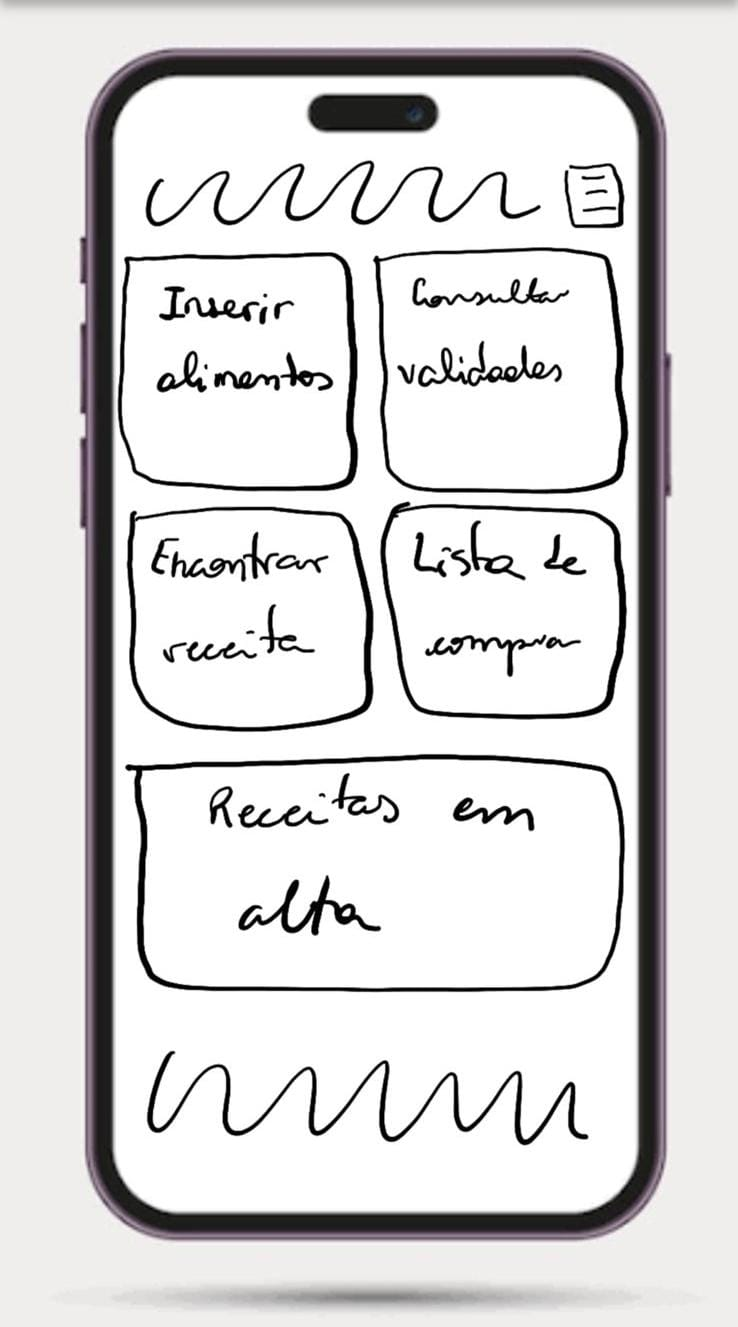 Inserir
alimentos
Consultar
validades
Encontrar
receita
Lista de
compra
Receitas em
alta